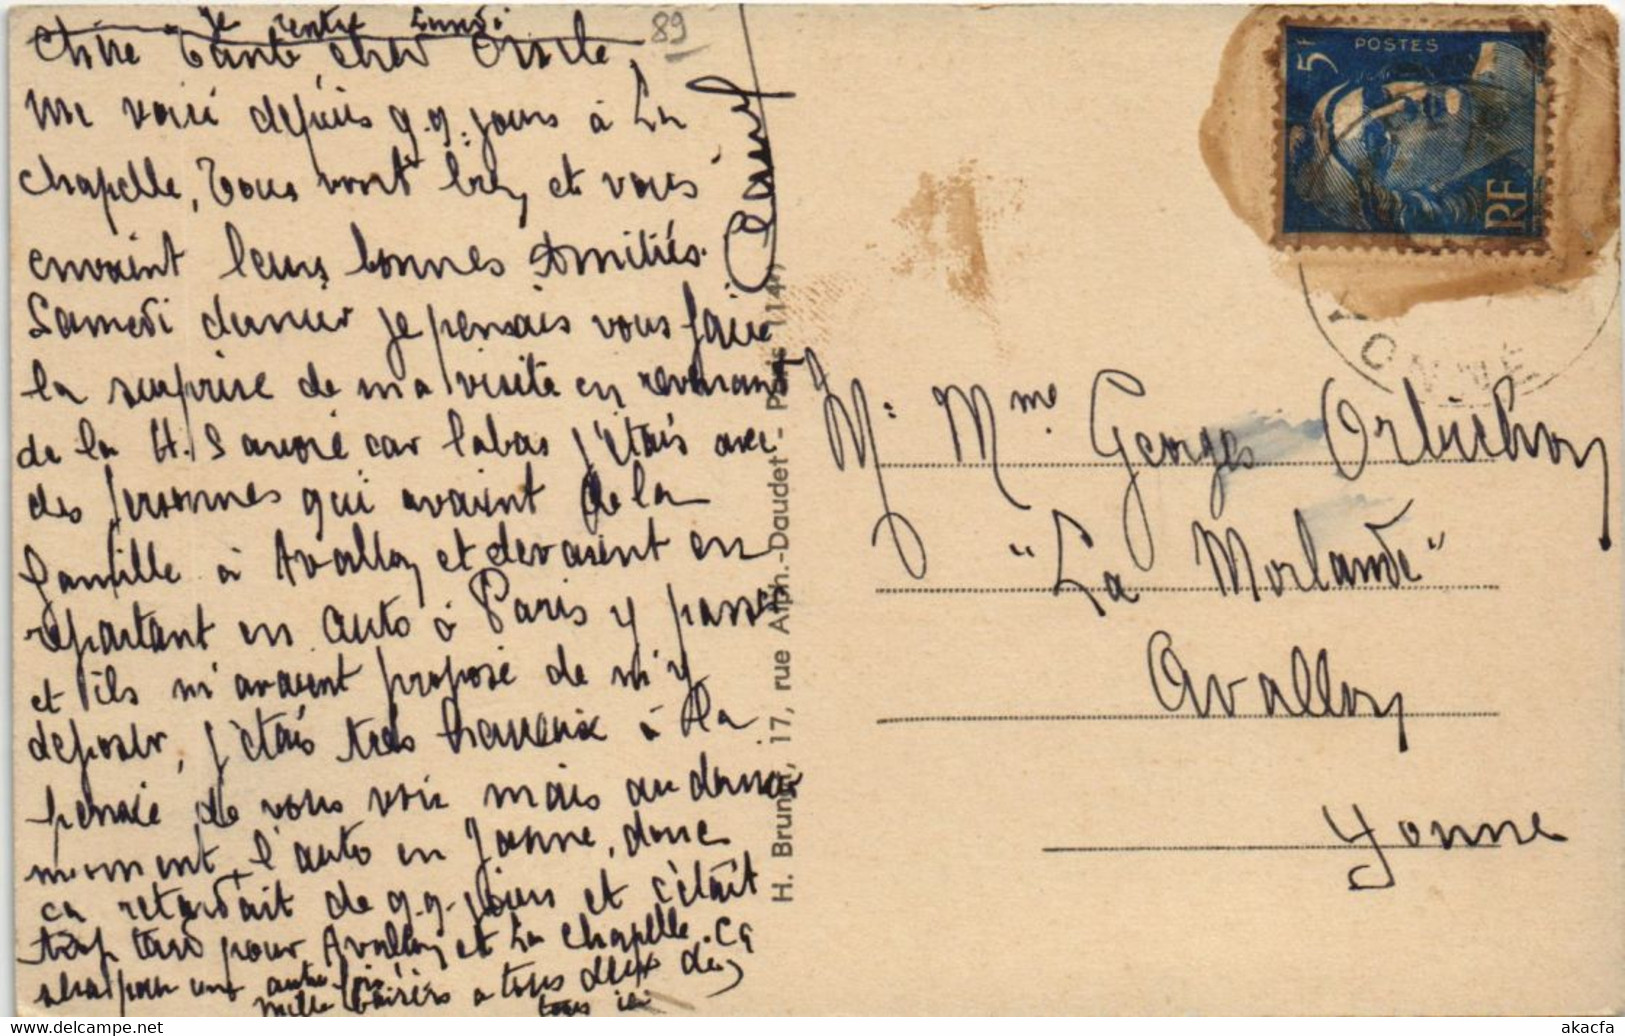 je rentre Lundi
89
Chère Tante, cher Oncle,
me voici depuis q.q. jours à La
chapelle, Tous vont bien et vous
envoient leurs bonnes Amitiés.
Samedi dernier je pensais vous faire
la surprise de ma visite en revenant
de la H. Savoie car labas j'étais avec
des personnes qui avaient de la
famille à Avallon et devaient en
repartant en auto à Paris y passer
et ils m'avaient proposé de m'y
deposer, j'étais très heureux à la
pensée de vous voir mais au dernier
moment, l'auto en panne, donc
ca retardait de q.q. jours et c'était
trop tard pour Avallon et La chapelle. Ca
sera pour une autre fois
mille baisers a tous deux de
tous ici
H. Brunin, 17, rue Alph.-Daudet - Paris (14e)
5F
POSTES
RF
YONNE
M. Mme Georges
"La Morlande"
Avallon
Yonne
akacfa
delcampe.net